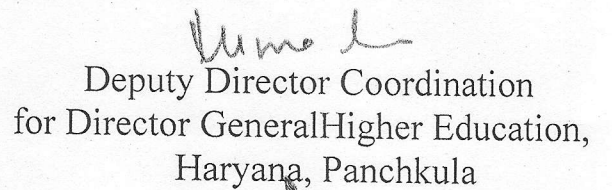 Deputy Director Coordination
for Director GeneralHigher Education,
Haryana, Panchkula